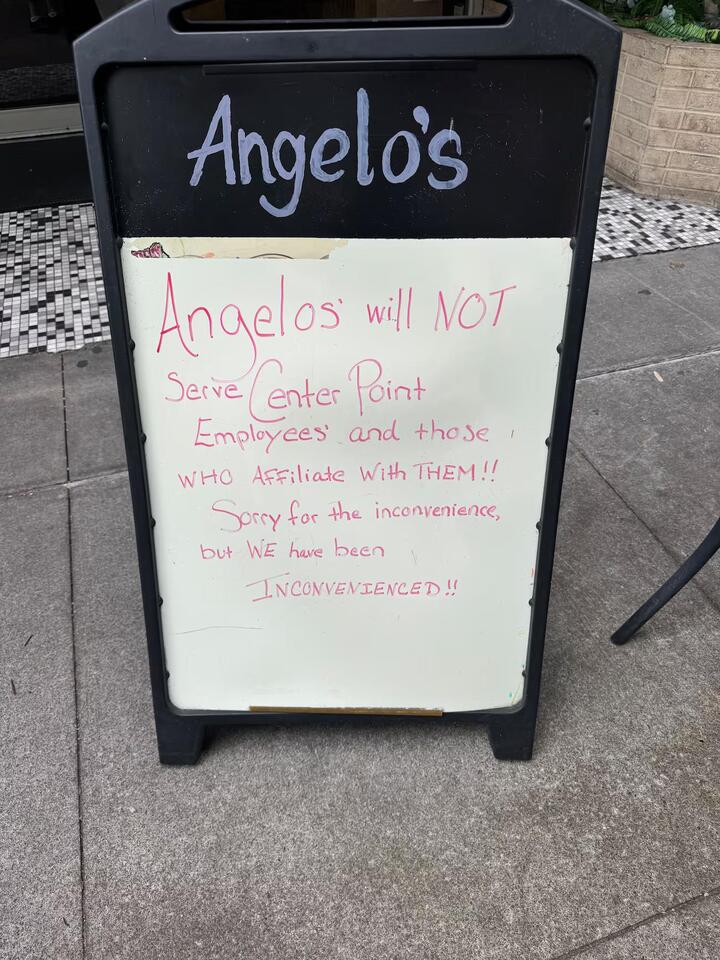 Angelo's
Angelos' will NOT
Serve Center Point
Employees' and those
WHO AFFiliate With THEM!!
Sorry for the inconvenience,
but WE have been
INCONVENIENCED!!